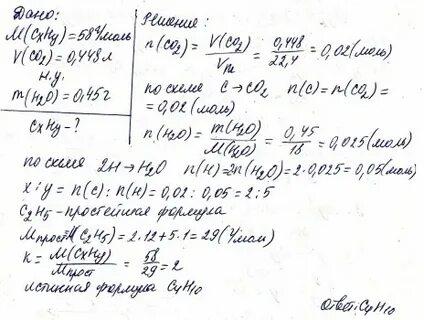 Дано:
M(CxHy)=58г/моль
V(CO2)=0,448л
н.у.
m(H2O)=0,45г
CxHy-?
Решение:
n(CO2) = V(CO2)/Vm = 0,448/22,4 = 0,02(моль)
по схеме C→CO2 n(C)=n(CO2)=
=0,02(моль)
n(H2O) = m(H2O)/M(H2O) = 0,45/18 = 0,025(моль)
по схеме 2H→H2O n(H)=2n(H2O)=2·0,025=0,05(моль)
x:y = n(C):n(H)=0,02:0,05=2:5
C2H5-простейшая формула
Mпрост(C2H5)=2·12+5·1=29(г/моль)
k = M(CxHy)/Mпрост = 58/29 = 2
истинная формула C4H10
Ответ: C4H10